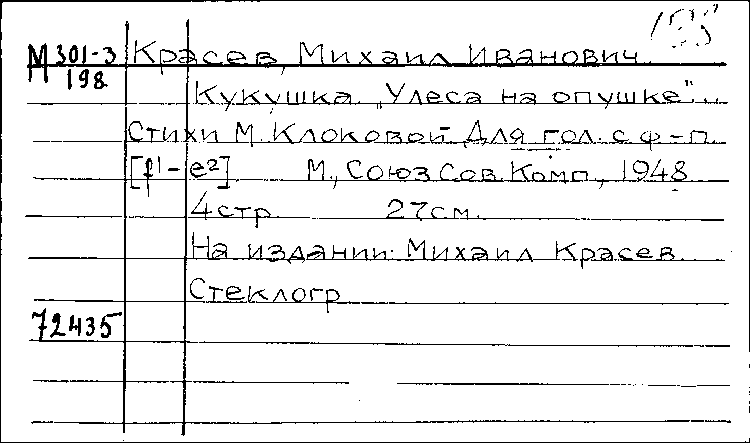 М 301-3 Красев, Михаил Иванович
198
Кукушка „Улеса на опушке"...
Стихи М. Клоковой Для гол. с ф-п.
[f¹- e²] М., Союз Сов. Комп., 1948
4 стр 27см.
На издании: Михаил Красев.
Стеклогр
72435